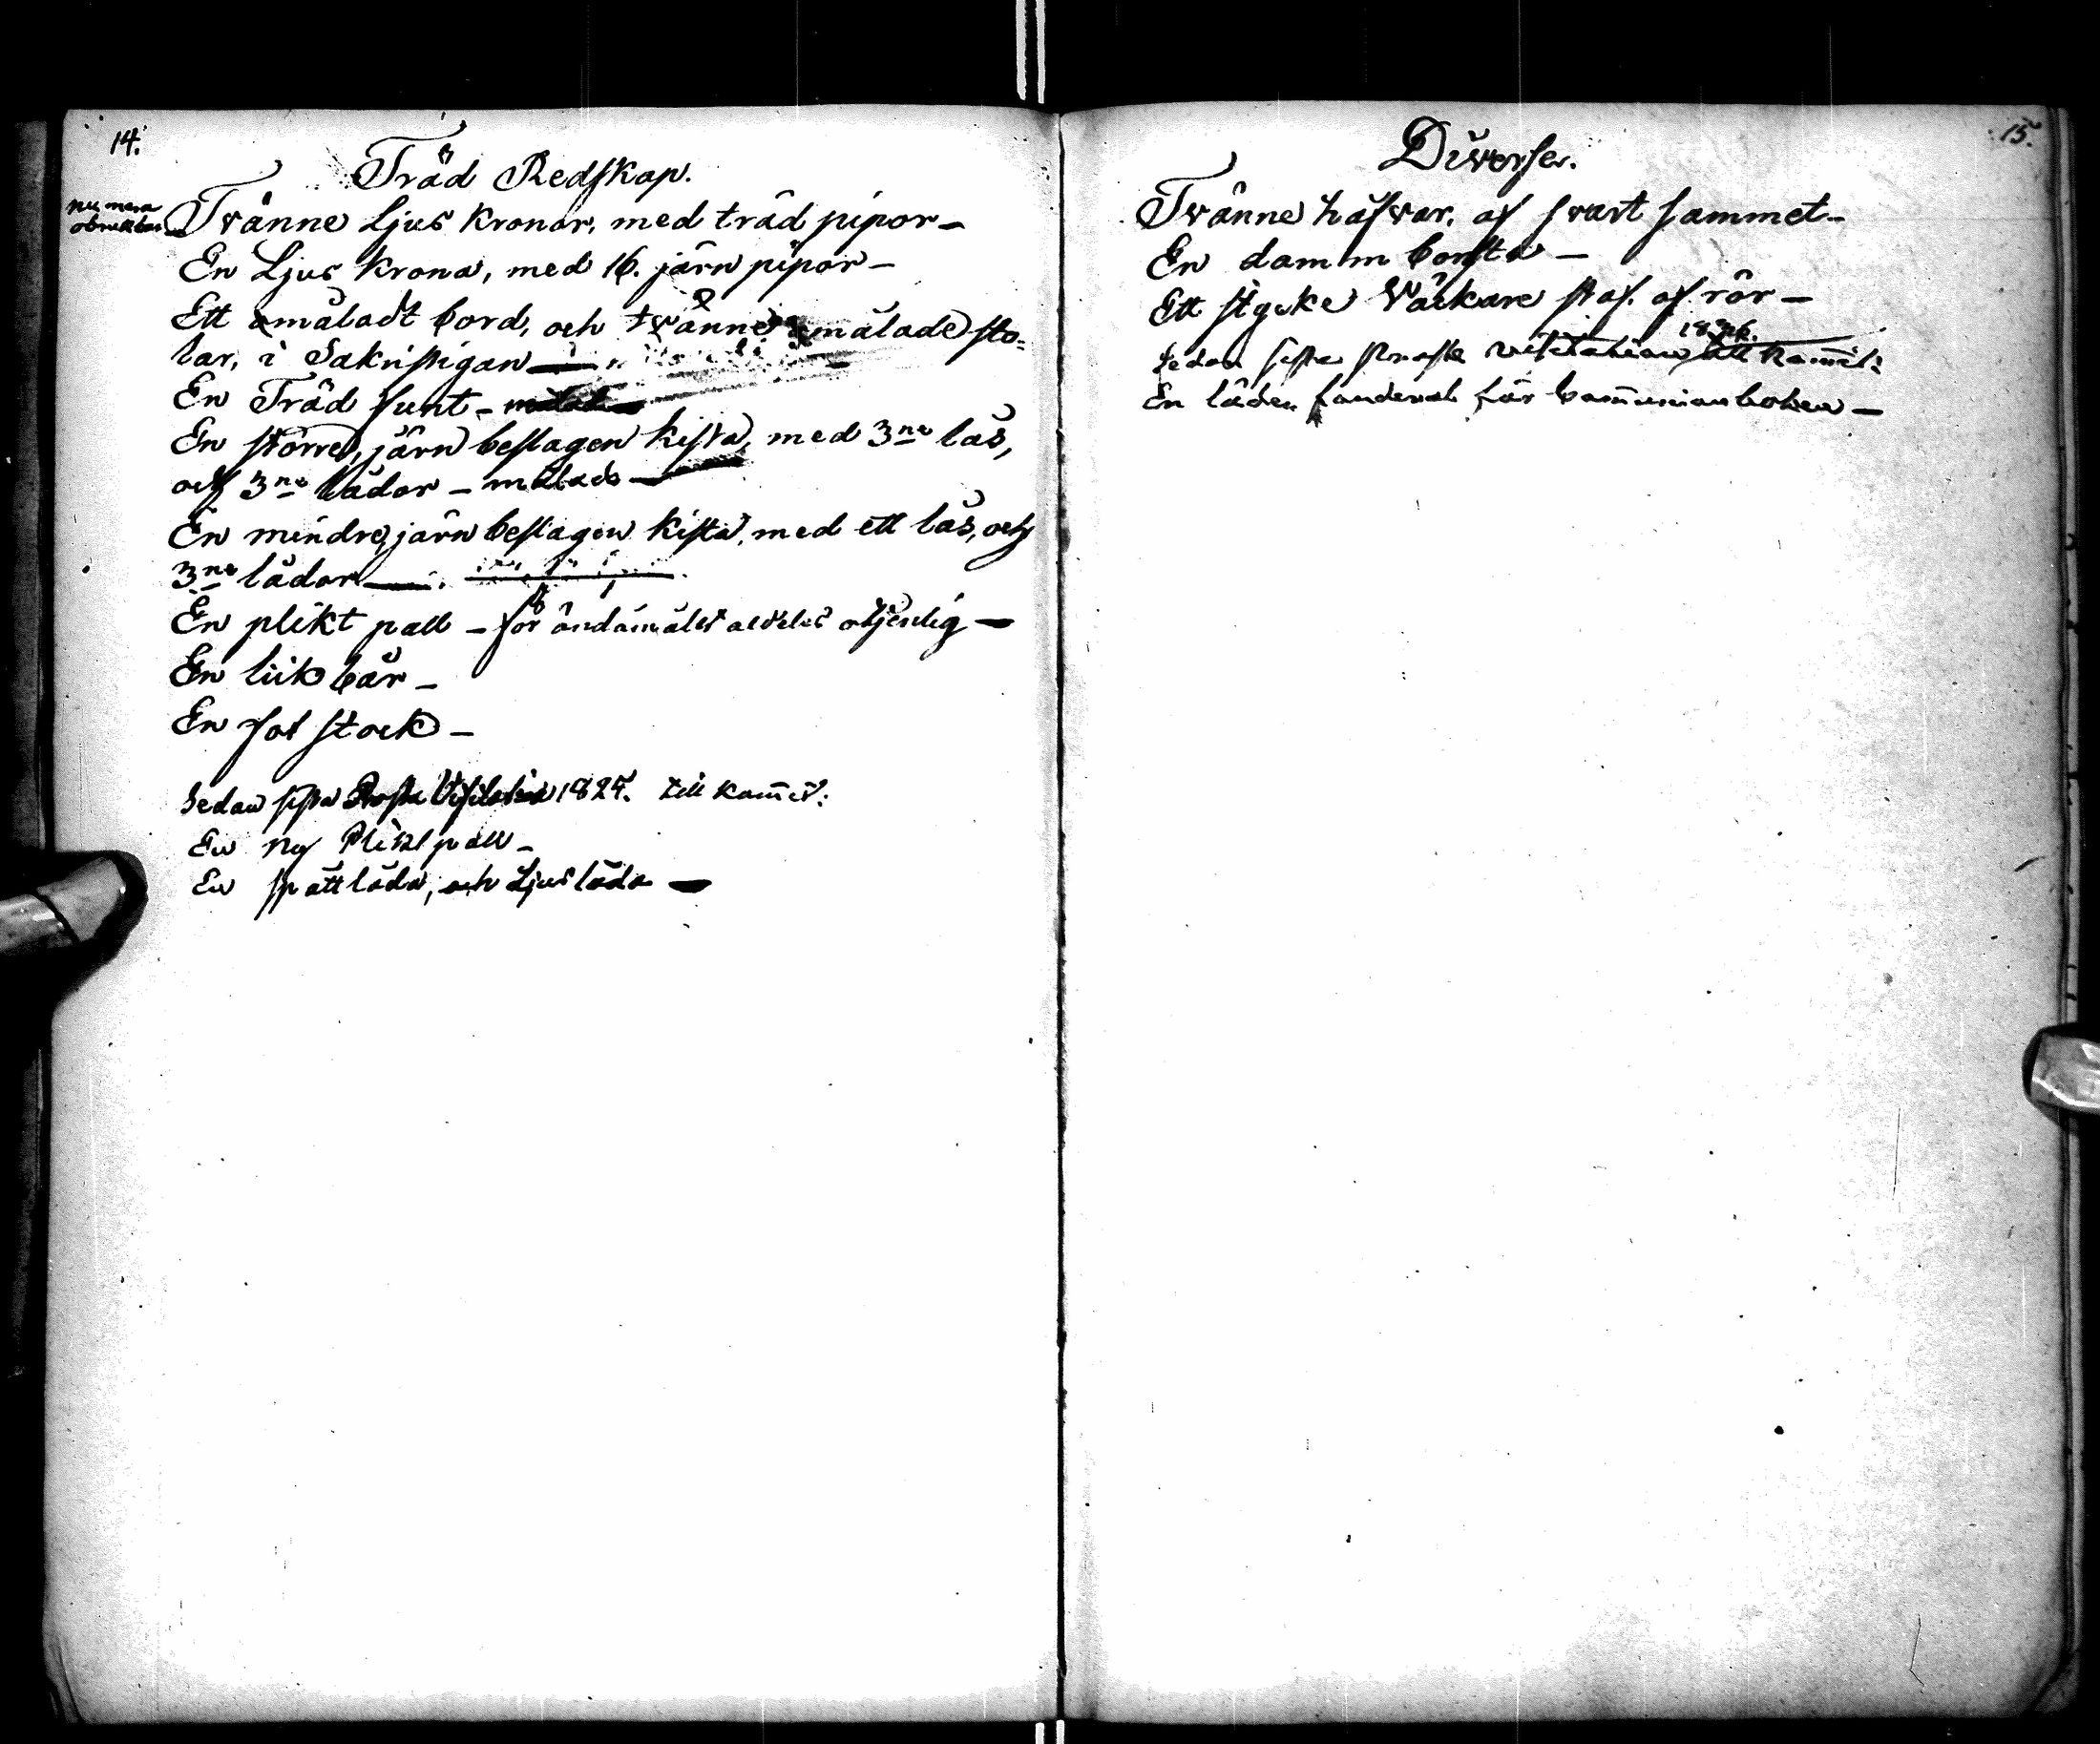 14.
Träd Redskap.
nu mera
obrukbar
Tvänne Ljus Kronor, med träd pipor –
En Ljus Krona, med 16. järn pipor –
Ett omåladt bord, och tvänne omålade sto=
lar, i Sakristigan –
En Träd funt –
En större, järn beslagen kista, med 3ne lås,
och 3ne lådor – målad –
En mindre, järn beslagen kista, med ett lås, och
3ne lådor –
En plikt pall – för ändamålet aldeles otjenlig –
En liik bår –
En fot stock –
Sedan sista Prosta Visitation 1824. till kommit:
En ny Pliktpall –
En spottlåda, och Ljuslåda –
15.
Diverse.
Tvänne håfvar, af svart sammet –
En damm borsta –
Ett stycke Väckare staf. af rör –
1826.
Sedan sista Prosta visitation till kommit:
En läder fouderal för communion boken –